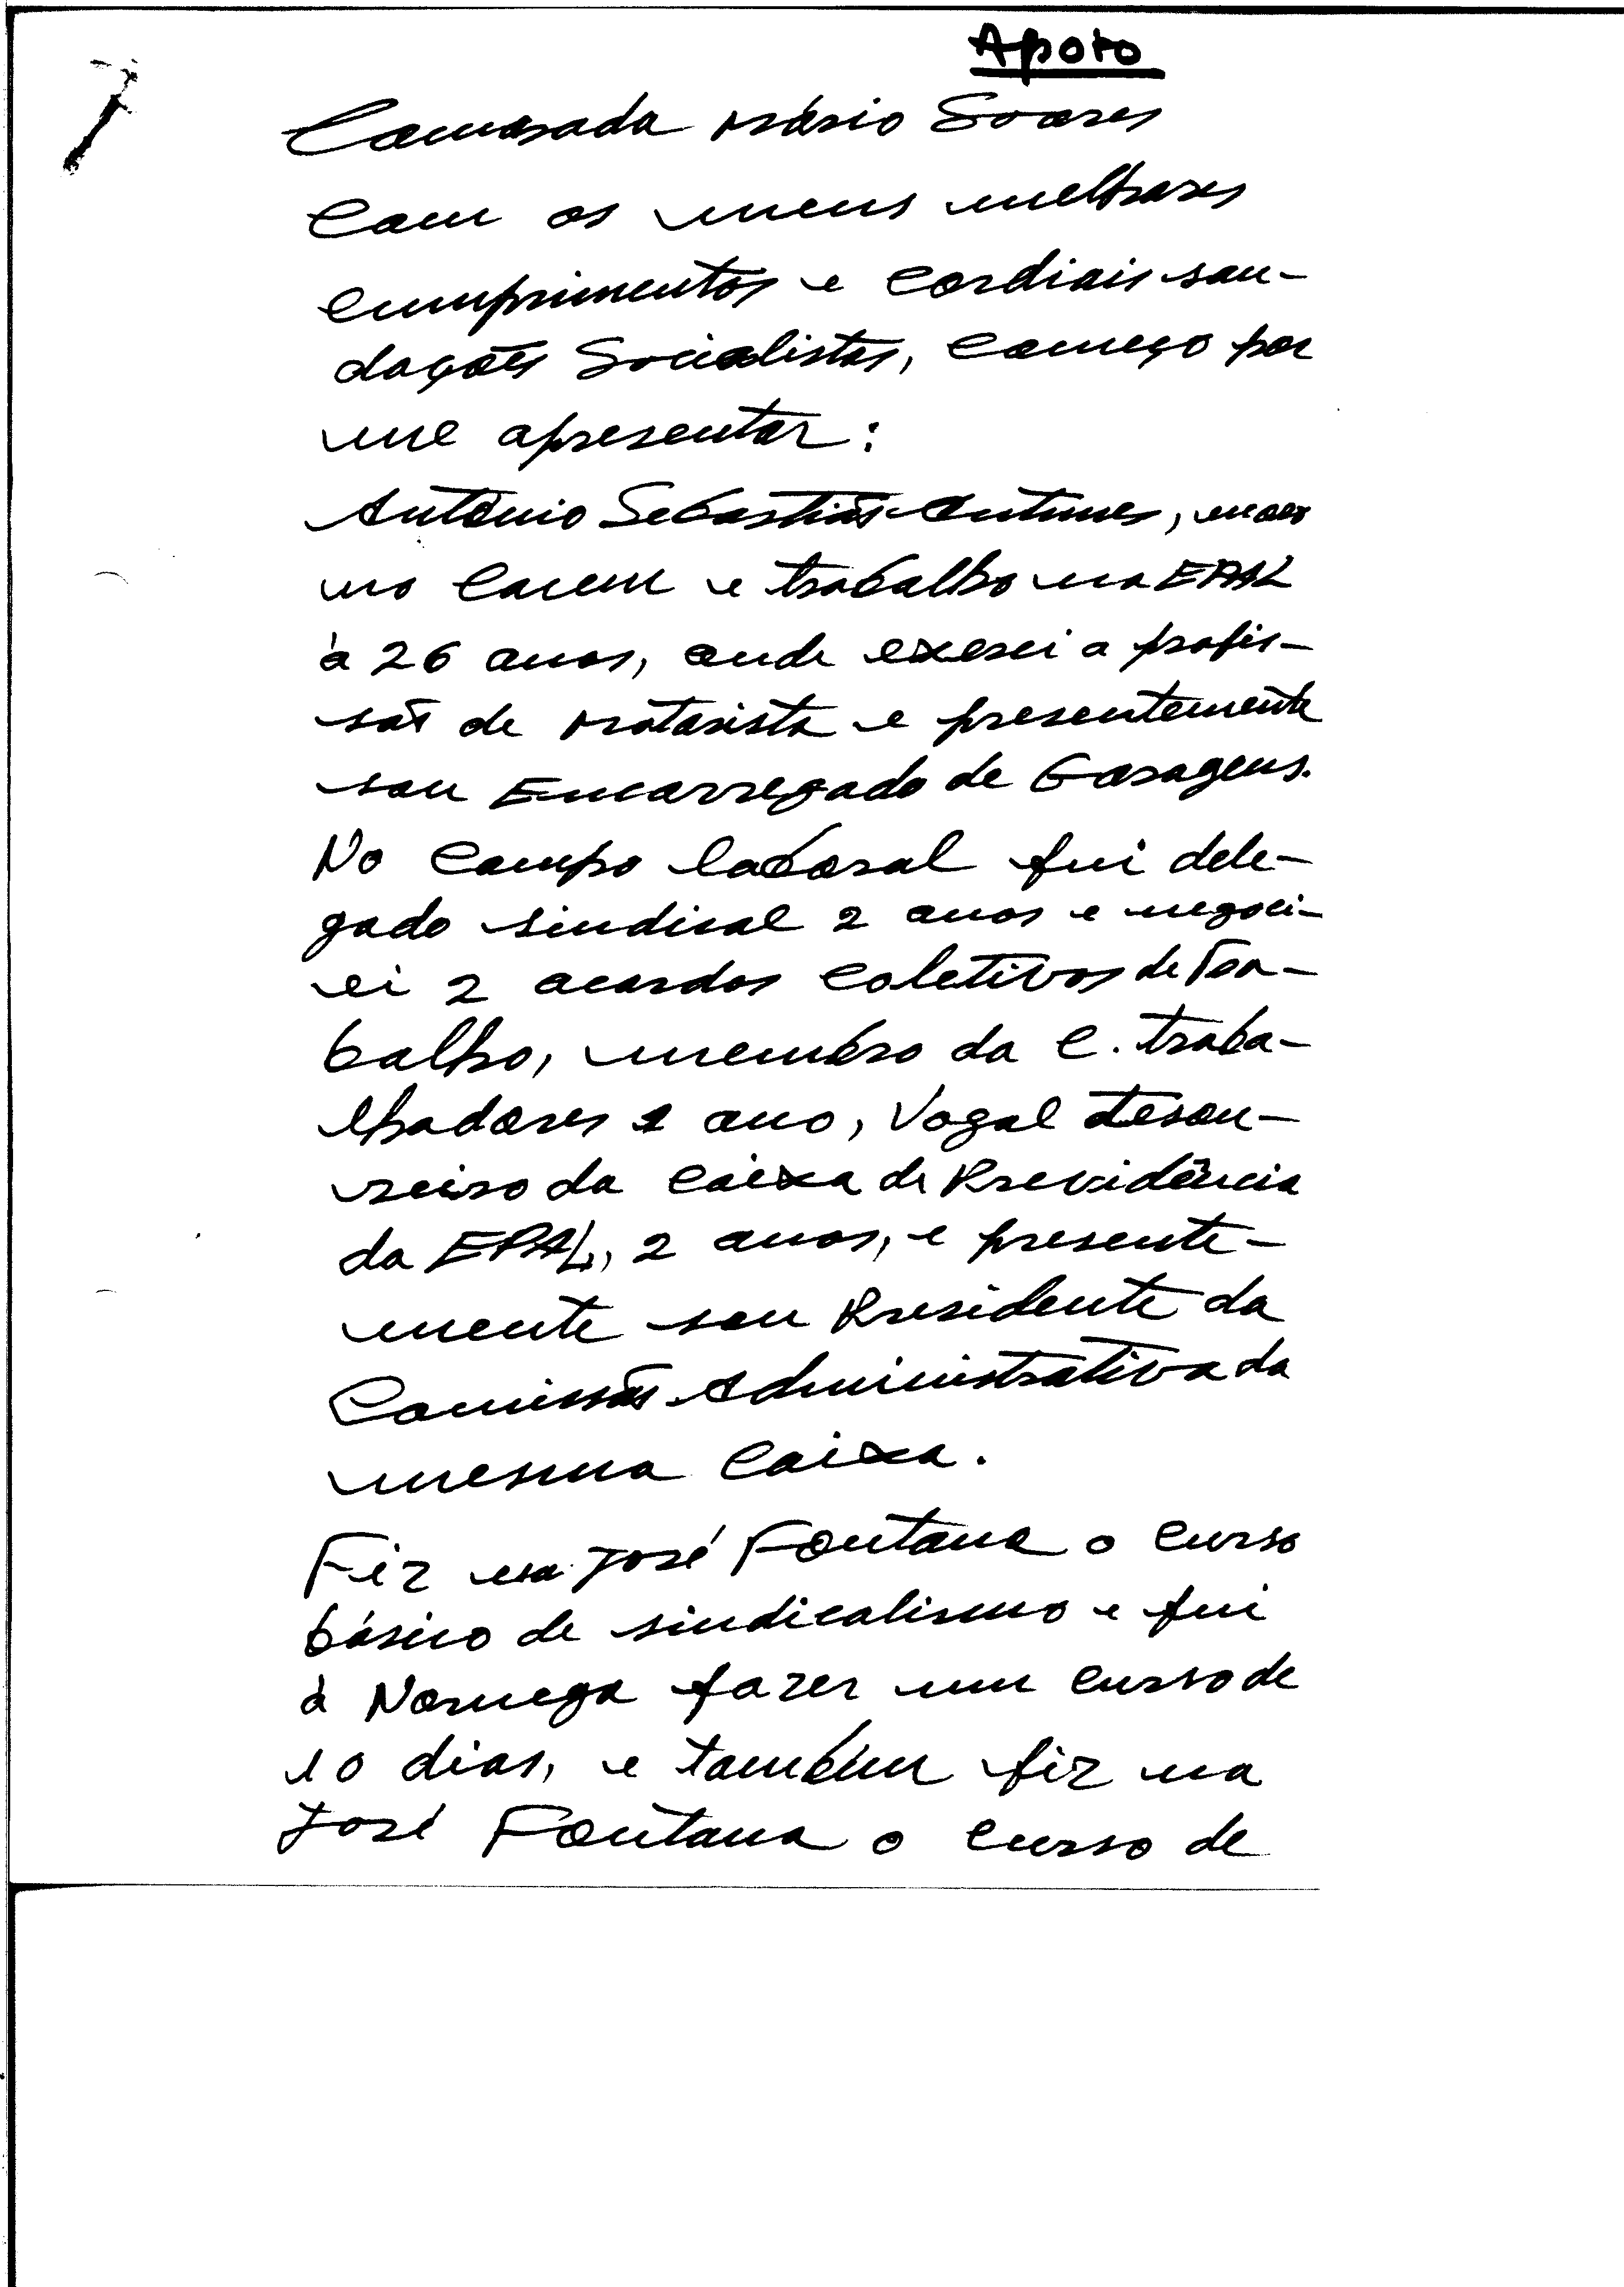 Apoio
Camarada Mário Soares
Com os meus melhores
cumprimentos e cordiais sau-
dações Socialistas, começo por
me apresentar:
António Sebastião Antunes, moro
no Cacem e trabalho na EPAL
à 26 anos, onde exerci a profis-
são de Motorista e presentemente
sou Encarregado de Garagens.
No campo laboral fui dele-
gado sindical 2 anos e negoci-
ei 2 acordos coletivos de Tra-
balho, membro da C. traba-
lhadores 1 ano, Vogal tesou-
reiro da Caixa de Previdência
da EPAL, 2 anos, e presente-
mente sou Presidente da
Comissão Administrativa da
mesma Caixa.
Fiz na José Fontana o curso
básico de sindicalismo e fui
à Noruega fazer um curso de
10 dias, e também fiz na
José Fontana o curso de